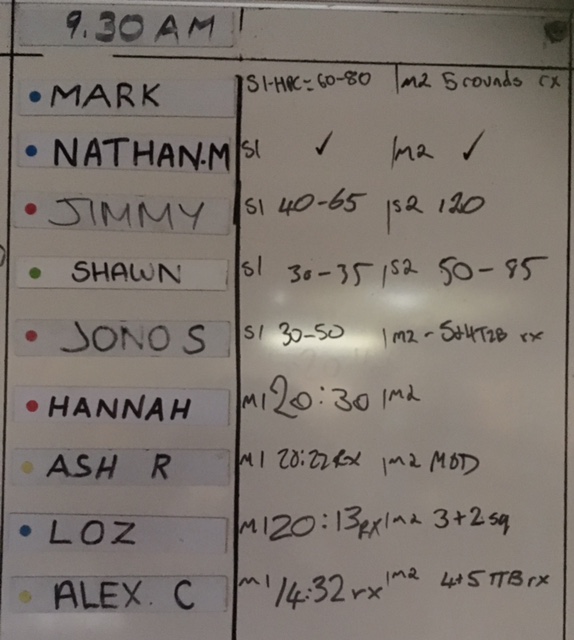 9.30 AM
MARK S1-HPC=60-80 | M2 5 rounds rx
NATHAN.M S1 ✓ | M2 ✓
JIMMY S1 40-65 | S2 120
SHAWN S1 30-35 | S2 50-85
JONO S S1 30-50 | M2 - 5+4T2B rx
HANNAH M1 20:30 | M2
ASH R M1 20:22 Rx | M2 MOD
LOZ M1 20:13 RX | M2 3+2sq
ALEX. C M1 14:32 rx | M2 4+5 TTB rx